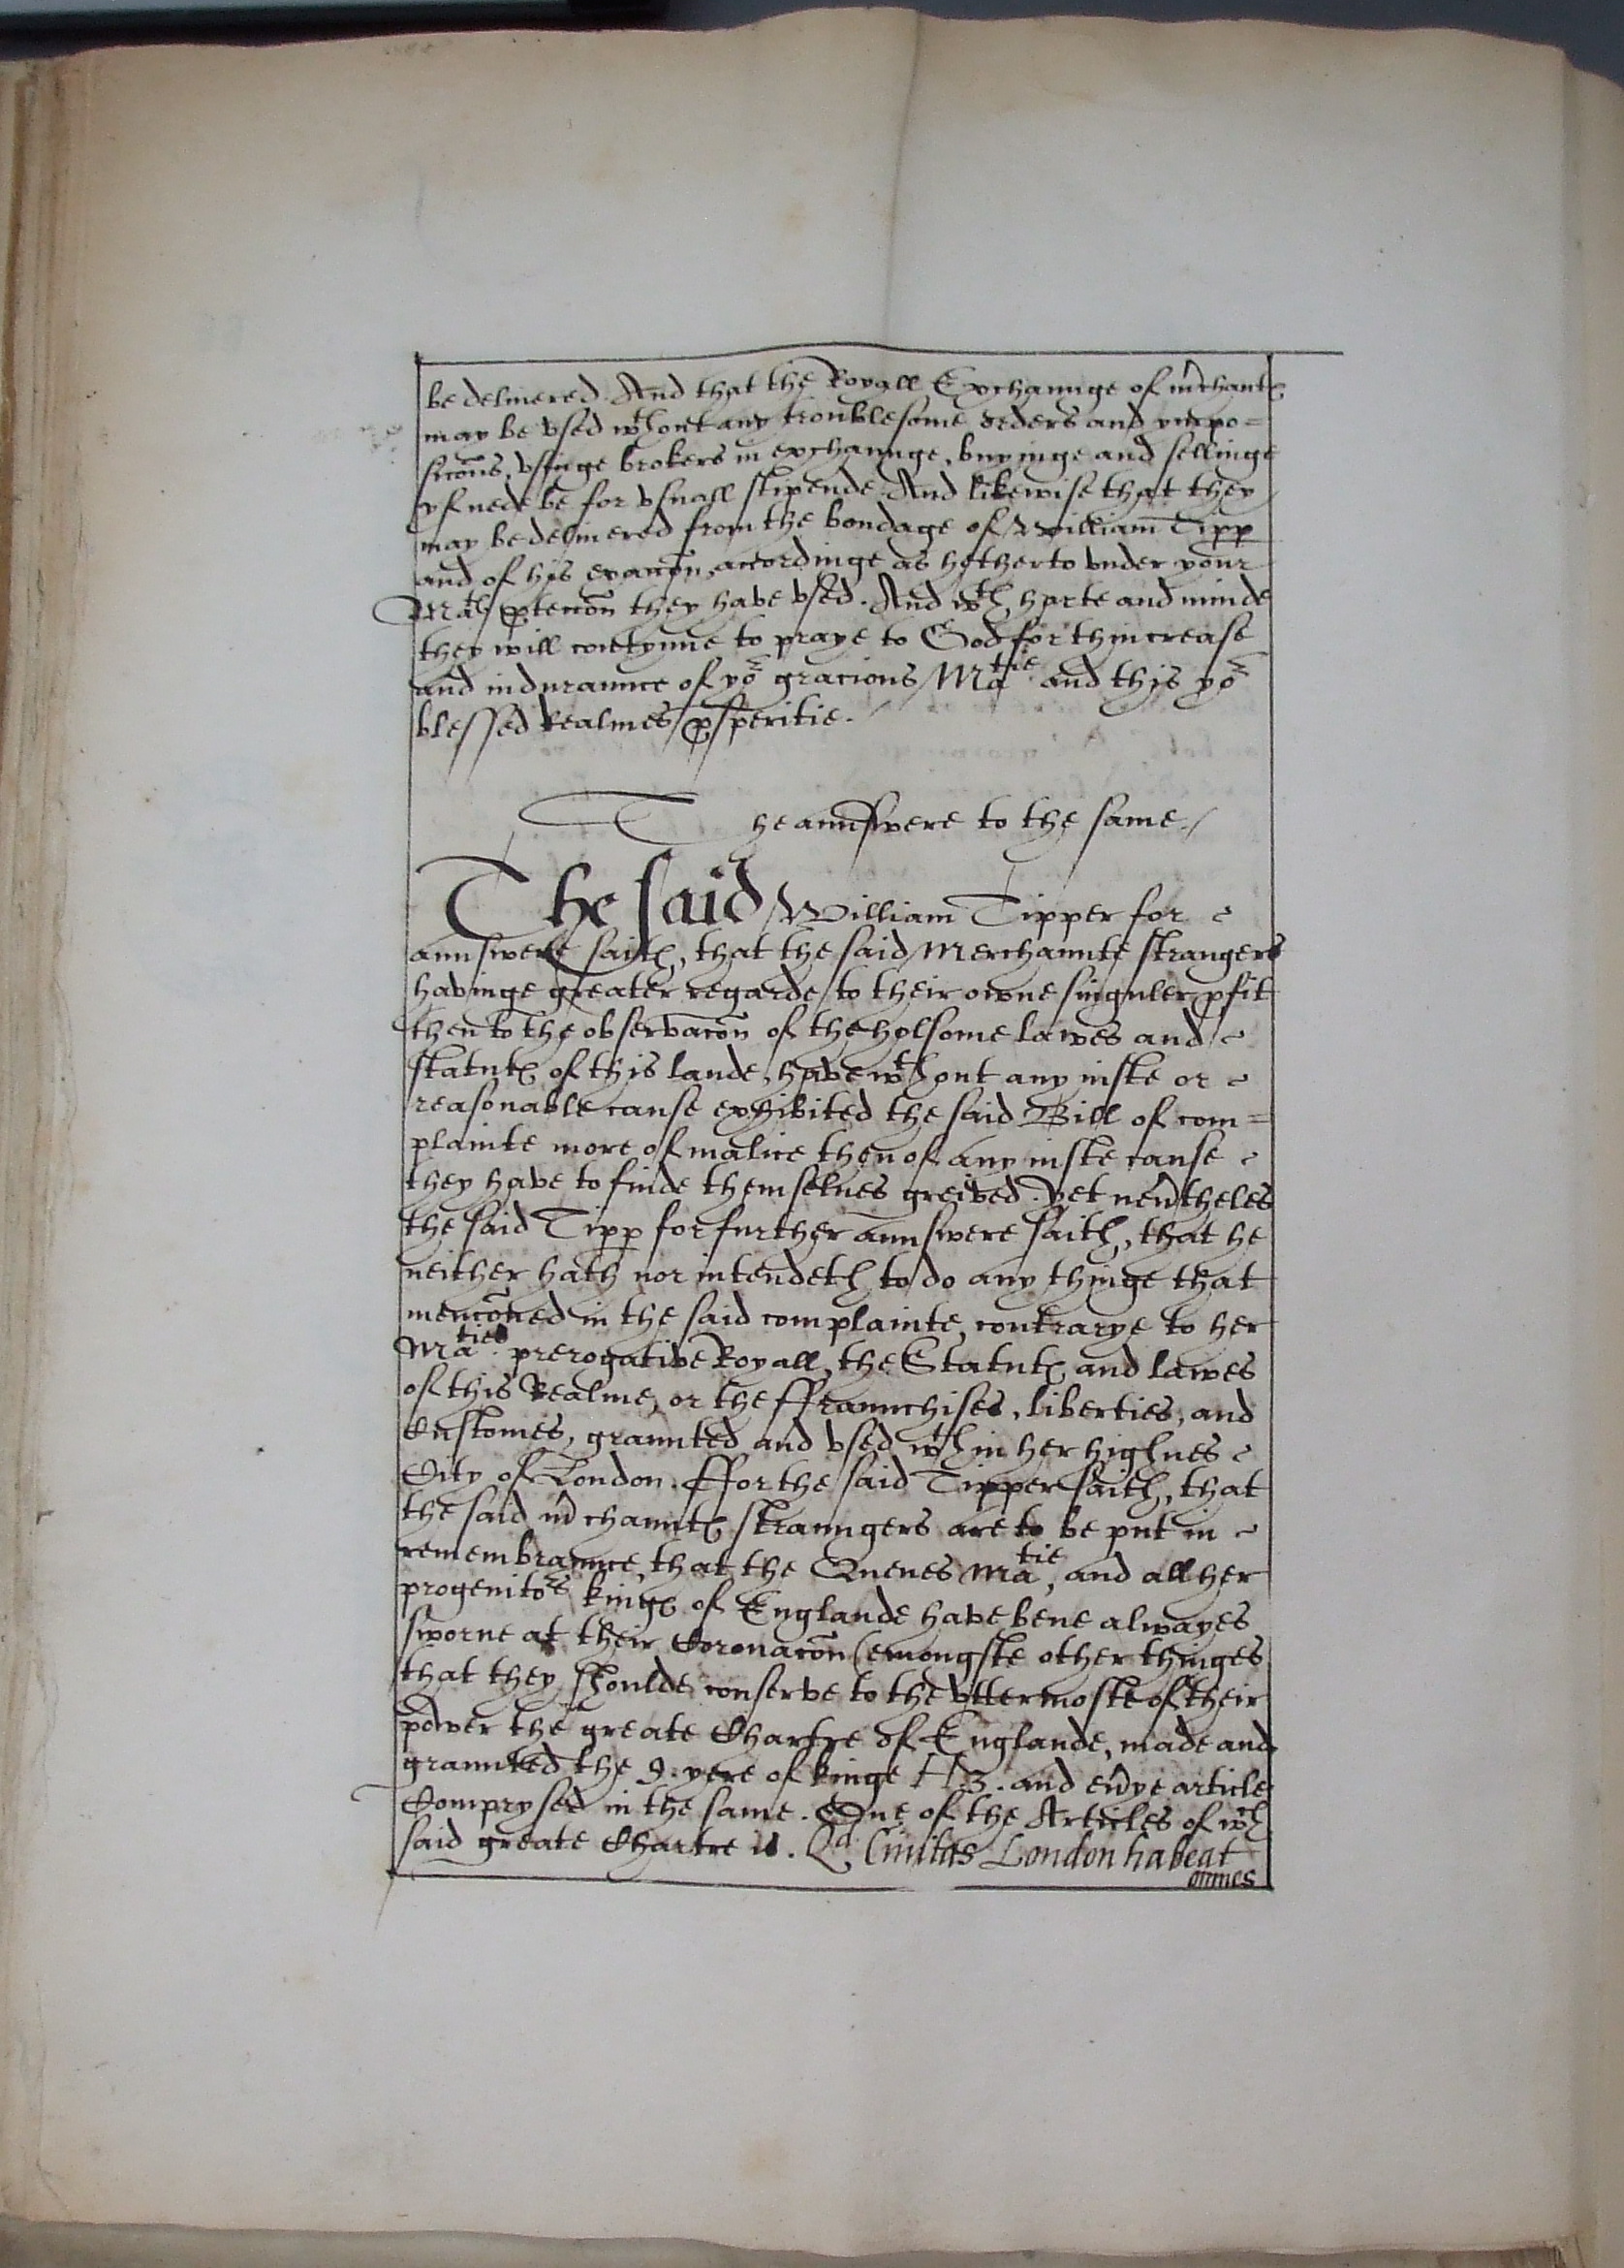 be deliuered. And that the Royall Exchaunge of m̃chant℮
may be vsed wth out any troublesome orders and ympo=
sicõns, vsinge brokers in exchaunge, buyinge and sellinge
yf nede be for vsuall stipende. And likewise that they
may be deliuered from the bondage of William Tipp
and of his exaccõn, accordinge as hetherto vnder your
Mats pteccõn they have vsed. And wth harte and minde
they will contynue to praye to God for thincrease
and induraunce of yor gracious Matie and this yor
blessed Realmes psperitie.
The aunswere to the same.
The said William Tipper for
aunswere saith, that the said Merchaunte strangers
havinge greater regarde to their owne singuler pfit
then to the observacõn of the holsome lawes and
statut℮ of this lande, have wth out any iuste or
reasonable cause exhibited the said Bill of com=
plainte more of malice then of any iuste cause
they have to finde themselues greived. yet neu̾theles
the said Tipp for further aunswere saith, that he
neither hath nor intendeth to do any thinge that
mencõned in the said complainte, contrarye to her
Maties prerogative Royall, the Statut℮ and lawes
of this Realme, or the ffraunchises, liberties, and
Customes, graunted and vsed wth in her highnes
City of London. ffor the said Tipper saith, that
the said m̃chaunt℮ straungers are to be put in
remembraunce, that the Quenes Matie, and all her
progenitors king℮ of Englande have bene alwayes
sworne at their Coronacõn (emongste other thinges
that they shoulde conserve to the vttermoste of their
power the greate Chartre of Englande, made and
graunted the 9. yere of kinge H. 3. and eu̾ye article
Comprysed in the same. One of the Articles of wch
said greate Chartre is. Qd Ciuitas London habeat
omnes